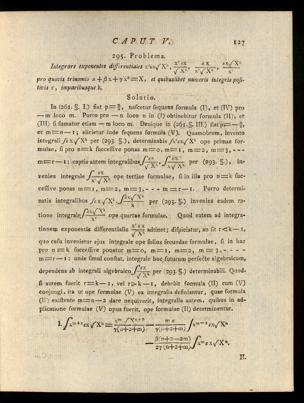 CAPUT V.
127
295. Problema.
Integrare exponentes differentiales
pro quouis trinomio α + βx + γx² = X, et quibuslibet numeris integris positiuis
r, imparibusque k.
Solutio.
In (261. §. I.) fiat p = , nascetur sequens formula (I), et (IV) pro
— m loco m. Porro pro — n loco n in (I) obtinebitur formula (II), et
(III) si fumatur etiam — m loco m. Denique in (261. §. III.) fiat
et m = n — 1; elicietur inde sequens formula (V). Quamobrem, invento
integrali per (293. §.), determinabis ope primae formulae,
si pro n = k succesfiue ponas m = 0, m = 1, m = 2, m = 3, - - -
m = r — 1: captis autem integralibus per (293. §.), invenies
integrale ope tertiae formulae, si in illa pro n = k succesfiue
ponas m = 1, m = 2, m = 3, - - - m = r — 1. Porro determinatis
integralibus per (293. §.) inveniea eadem ratione
integrale ope quartae formulae. Quod autem ad integrationem
exponentis differentialis attinet; dispiciatur, an fit r < k — 1,
quo cafu invenietur ejus integrale ope solius secundae formulae, si in hac
pro n = k succesfiue ponatur m = 0, m = 1, m = 2, m = 3, - - -
m = r — 1: unde simul constat, integrale hoc futurum perfecte algebraicum,
dependens ab integrali algebraico per (293. §.) determinabili. Quodsi
autem fuerit r = k — 1, vel r > k — 1, debebit formula (II) cum (V)
conjungi, ita ut ope formulae (V) ea integralia definiantur, quae formula
(II) existente m = n — 2 dare nequiverit, integralia autem, quibus in adplicatione
formulae (V) opus fuerit, ope formulae (II) determinentur.
I.
II.